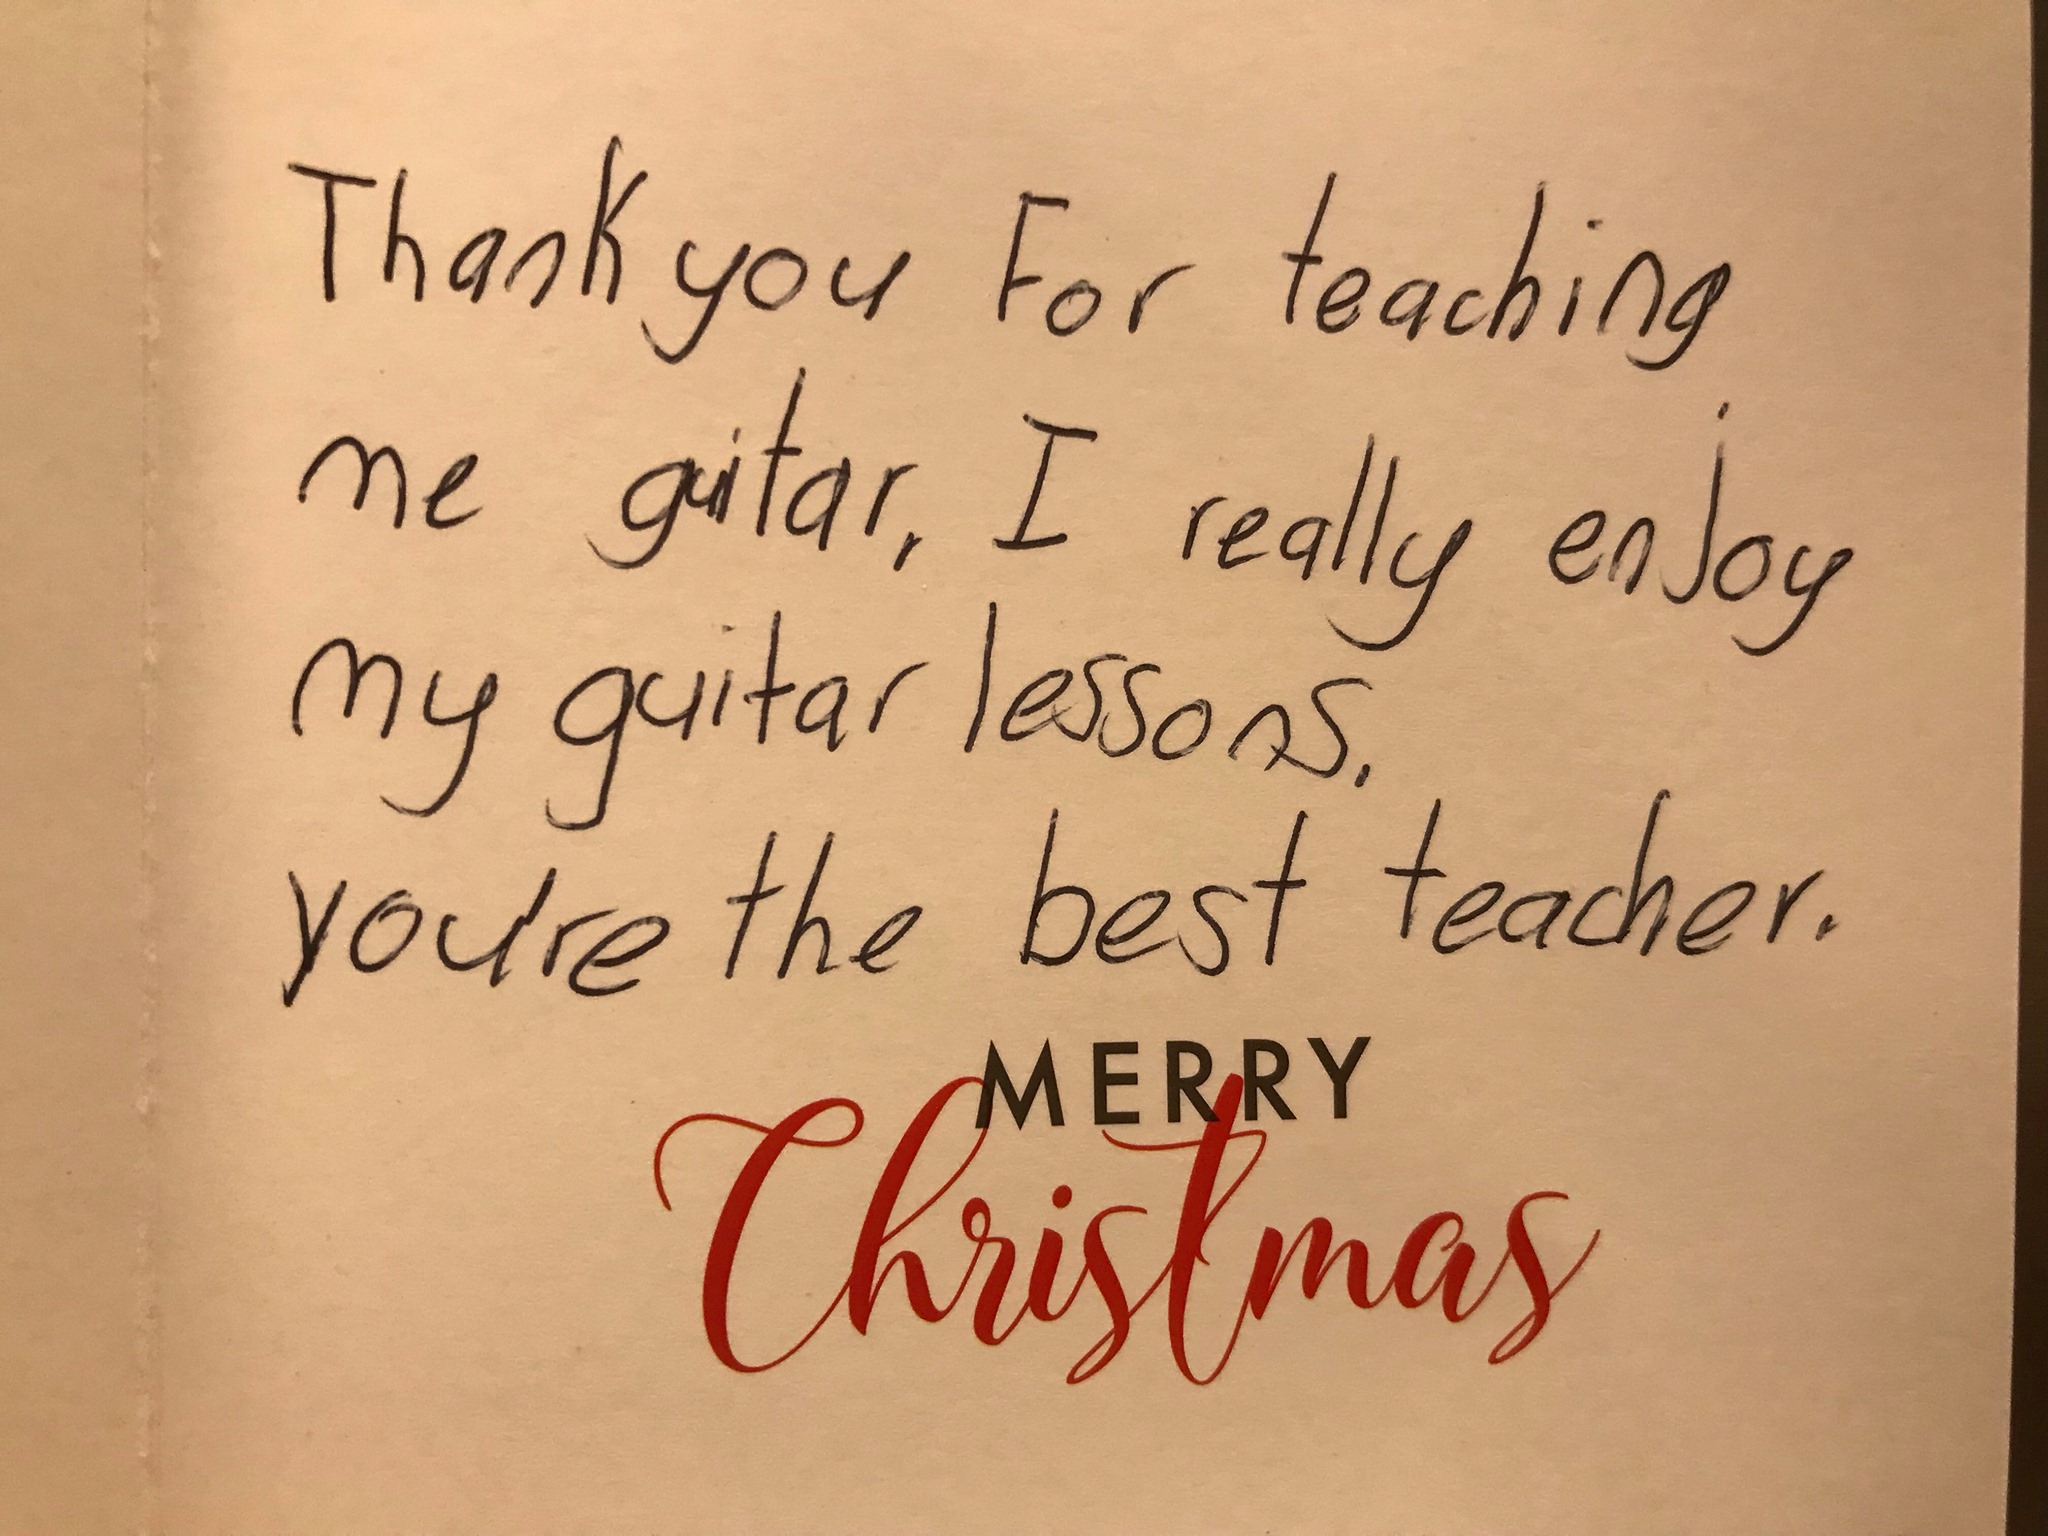 Thank you For teaching
me guitar, I really enjoy
my guitar lessons.
you're the best teacher.
MERRY
Christmas